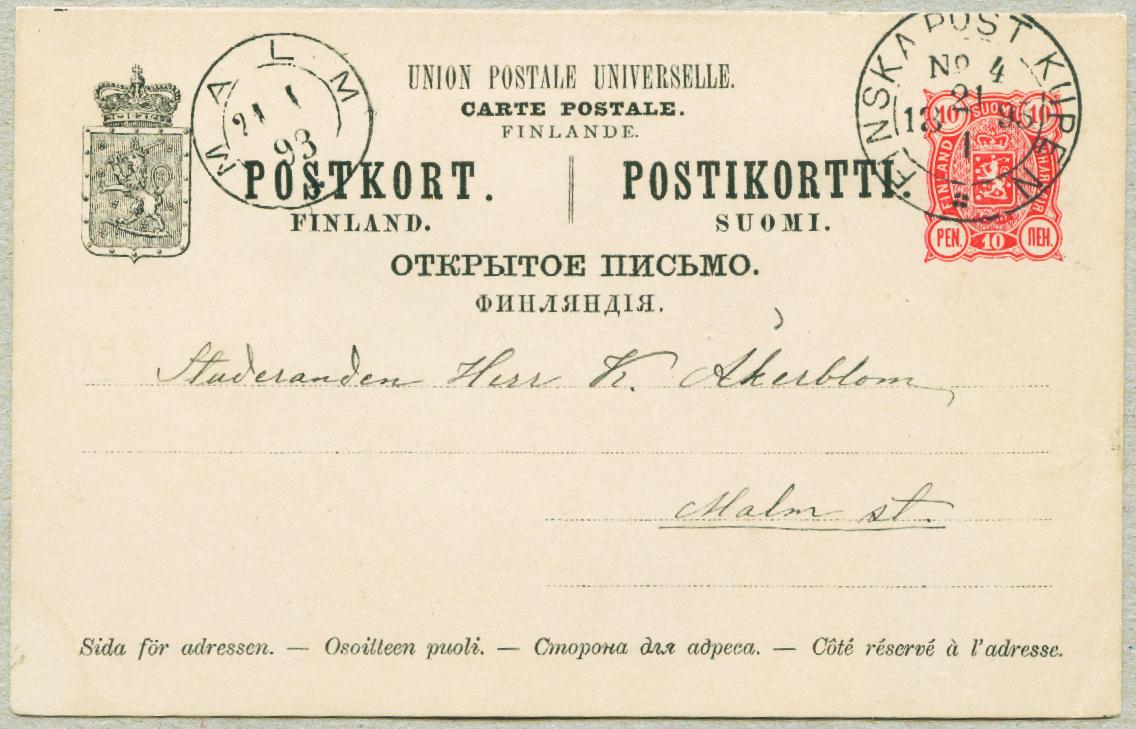 MALM
21 1
93
UNION POSTALE UNIVERSELLE.
CARTE POSTALE.
FINLANDE.
POSTKORT. POSTIKORTTI.
FINLAND. SUOMI.
ОТКРЫТОЕ ПИСЬМО.
ФИНЛЯНДІЯ.
FINSKA POST KUPEN
No 4
21
18 93
1
10 SUOMI 10
FINLAND
PEN. 10 ПЕН.
Studeranden Herr K. Åkerblom,
Malm st.
Sida för adressen. — Osoitteen puoli. — Сторона для адреса. — Côté réservé à l'adresse.